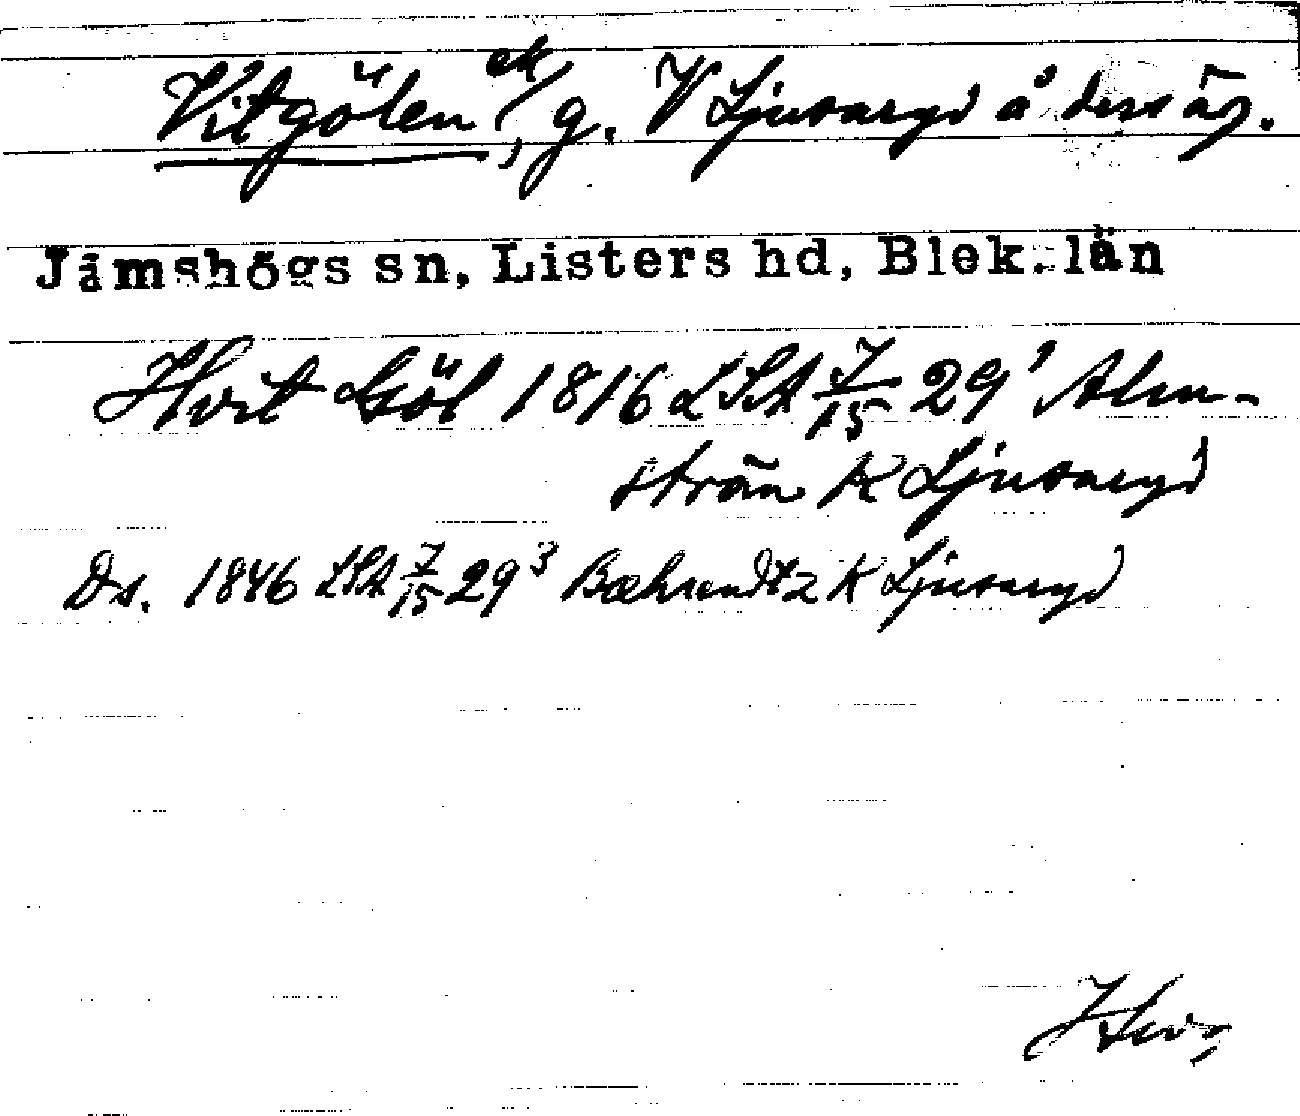 Vitgölen ek, g. V Ljusaryd å dess äg.
Jämshögs sn, Listers hd, Blek. län
Hvit Göl 1816 LSA 7/15 29¹ Alm-
strän K Ljusaryd
Ds. 1846 LSA 7/15 29³ Bæhrendtz K Ljusaryd